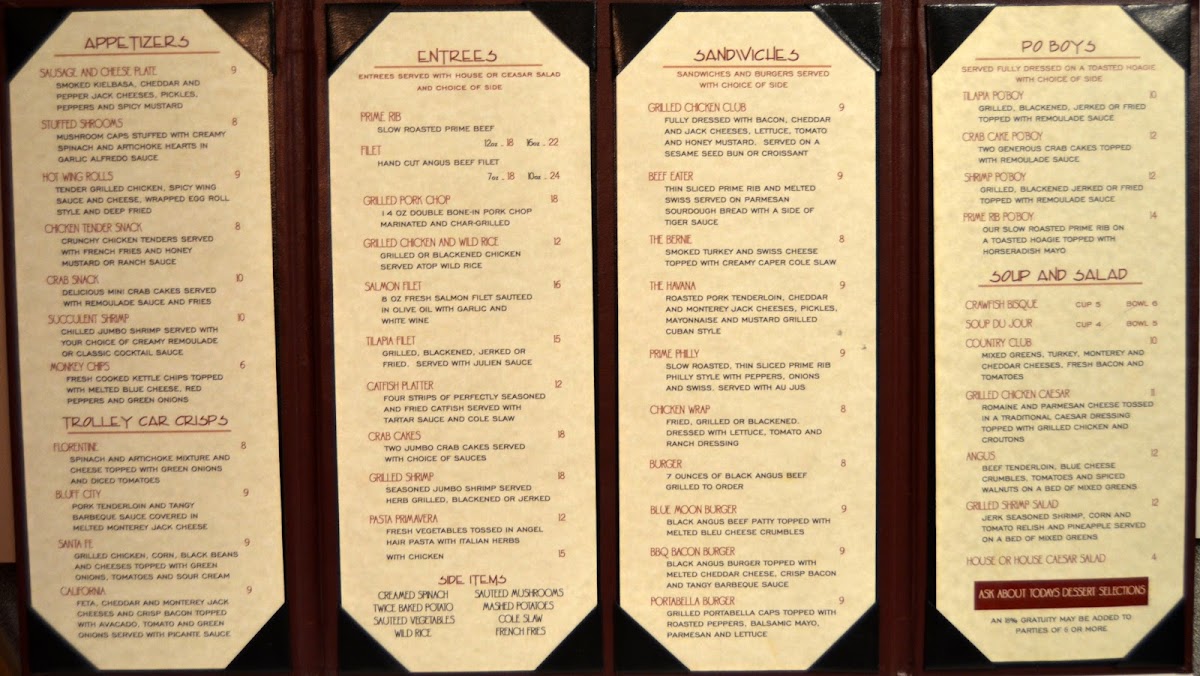 APPETIZERS
SAUSAGE AND CHEESE PLATE 9
SMOKED KIELBASA, CHEDDAR AND
PEPPER JACK CHEESES, PICKLES,
PEPPERS AND SPICY MUSTARD
STUFFED SHROOMS 8
MUSHROOM CAPS STUFFED WITH CREAMY
SPINACH AND ARTICHOKE HEARTS IN
GARLIC ALFREDO SAUCE
HOT WING ROLLS 9
TENDER GRILLED CHICKEN, SPICY WING
SAUCE AND CHEESE, WRAPPED EGG ROLL
STYLE AND DEEP FRIED
CHICKEN TENDER SNACK 8
CRUNCHY CHICKEN TENDERS SERVED
WITH FRENCH FRIES AND HONEY
MUSTARD OR RANCH SAUCE
CRAB SNACK 10
DELICIOUS MINI CRAB CAKES SERVED
WITH REMOULADE SAUCE AND FRIES
SUCCULENT SHRIMP 10
CHILLED JUMBO SHRIMP SERVED WITH
YOUR CHOICE OF CREAMY REMOULADE
OR CLASSIC COCKTAIL SAUCE
MONKEY CHIPS 6
FRESH COOKED KETTLE CHIPS TOPPED
WITH MELTED BLUE CHEESE, RED
PEPPERS AND GREEN ONIONS
TROLLEY CAR CRISPS
FLORENTINE 8
SPINACH AND ARTICHOKE MIXTURE AND
CHEESE TOPPED WITH GREEN ONIONS
AND DICED TOMATOES
BLUFF CITY 9
PORK TENDERLOIN AND TANGY
BARBEQUE SAUCE COVERED IN
MELTED MONTEREY JACK CHEESE
SANTA FE 9
GRILLED CHICKEN, CORN, BLACK BEANS
AND CHEESES TOPPED WITH GREEN
ONIONS, TOMATOES AND SOUR CREAM
CALIFORNIA 9
FETA, CHEDDAR AND MONTEREY JACK
CHEESES AND CRISP BACON TOPPED
WITH AVOCADO, TOMATO AND GREEN
ONIONS SERVED WITH PICANTE SAUCE
ENTREES
ENTREES SERVED WITH HOUSE OR CEASAR SALAD
AND CHOICE OF SIDE
PRIME RIB
SLOW ROASTED PRIME BEEF
12oz .. 18 16oz .. 22
FILET
HAND CUT ANGUS BEEF FILET
7oz .. 18 10oz .. 24
GRILLED PORK CHOP 18
14 OZ DOUBLE BONE-IN PORK CHOP
MARINATED AND CHAR-GRILLED
GRILLED CHICKEN AND WILD RICE 12
GRILLED OR BLACKENED CHICKEN
SERVED ATOP WILD RICE
SALMON FILET 16
8 OZ FRESH SALMON FILET SAUTEED
IN OLIVE OIL WITH GARLIC AND
WHITE WINE
TILAPIA FILET 15
GRILLED, BLACKENED, JERKED OR
FRIED. SERVED WITH JULIEN SAUCE
CATFISH PLATTER 12
FOUR STRIPS OF PERFECTLY SEASONED
AND FRIED CATFISH SERVED WITH
TARTAR SAUCE AND COLE SLAW
CRAB CAKES 18
TWO JUMBO CRAB CAKES SERVED
WITH CHOICE OF SAUCES
GRILLED SHRIMP 18
SEASONED JUMBO SHRIMP SERVED
HERB GRILLED, BLACKENED OR JERKED
PASTA PRIMAVERA 12
FRESH VEGETABLES TOSSED IN ANGEL
HAIR PASTA WITH ITALIAN HERBS
WITH CHICKEN 15
SIDE ITEMS
CREAMED SPINACH SAUTEED MUSHROOMS
TWICE BAKED POTATO MASHED POTATOES
SAUTEED VEGETABLES COLE SLAW
WILD RICE FRENCH FRIES
SANDWICHES
SANDWICHES AND BURGERS SERVED
WITH CHOICE OF SIDE
GRILLED CHICKEN CLUB 9
FULLY DRESSED WITH BACON, CHEDDAR
AND JACK CHEESES, LETTUCE, TOMATO
AND HONEY MUSTARD. SERVED ON A
SESAME SEED BUN OR CROISSANT
BEEF EATER 9
THIN SLICED PRIME RIB AND MELTED
SWISS SERVED ON PARMESAN
SOURDOUGH BREAD WITH A SIDE OF
TIGER SAUCE
THE BERNIE 8
SMOKED TURKEY AND SWISS CHEESE
TOPPED WITH CREAMY CAPER COLE SLAW
THE HAVANA 9
ROASTED PORK TENDERLOIN, CHEDDAR
AND MONTEREY JACK CHEESES, PICKLES,
MAYONNAISE AND MUSTARD GRILLED
CUBAN STYLE
PRIME PHILLY 9
SLOW ROASTED, THIN SLICED PRIME RIB
PHILLY STYLE WITH PEPPERS, ONIONS
AND SWISS. SERVED WITH AU JUS
CHICKEN WRAP 8
FRIED, GRILLED OR BLACKENED,
DRESSED WITH LETTUCE, TOMATO AND
RANCH DRESSING
BURGER 8
7 OUNCES OF BLACK ANGUS BEEF
GRILLED TO ORDER
BLUE MOON BURGER 9
BLACK ANGUS BEEF PATTY TOPPED WITH
MELTED BLEU CHEESE CRUMBLES
BBQ BACON BURGER 9
BLACK ANGUS BURGER TOPPED WITH
MELTED CHEDDAR CHEESE, CRISP BACON
AND TANGY BARBEQUE SAUCE
PORTABELLA BURGER 9
GRILLED PORTABELLA CAPS TOPPED WITH
ROASTED PEPPERS, BALSAMIC MAYO,
PARMESAN AND LETTUCE
PO BOYS
SERVED FULLY DRESSED ON A TOASTED HOAGIE
WITH CHOICE OF SIDE
TILAPIA PO'BOY 10
GRILLED, BLACKENED, JERKED OR FRIED
TOPPED WITH REMOULADE SAUCE
CRAB CAKE PO'BOY 12
TWO GENEROUS CRAB CAKES TOPPED
WITH REMOULADE SAUCE
SHRIMP PO'BOY 12
GRILLED, BLACKENED JERKED OR FRIED
TOPPED WITH REMOULADE SAUCE
PRIME RIB PO'BOY 14
OUR SLOW ROASTED PRIME RIB ON
A TOASTED HOAGIE TOPPED WITH
HORSERADISH MAYO
SOUP AND SALAD
CRAWFISH BISQUE CUP 5 BOWL 6
SOUP DU JOUR CUP 4 BOWL 5
COUNTRY CLUB 10
MIXED GREENS, TURKEY, MONTEREY AND
CHEDDAR CHEESES, FRESH BACON AND
TOMATOES
GRILLED CHICKEN CAESAR 11
ROMAINE AND PARMESAN CHEESE TOSSED
IN A TRADITIONAL CAESAR DRESSING
TOPPED WITH GRILLED CHICKEN AND
CROUTONS
ANGUS 12
BEEF TENDERLOIN, BLUE CHEESE
CRUMBLES, TOMATOES AND SPICED
WALNUTS ON A BED OF MIXED GREENS
GRILLED SHRIMP SALAD 12
JERK SEASONED SHRIMP, CORN AND
TOMATO RELISH AND PINEAPPLE SERVED
ON A BED OF MIXED GREENS
HOUSE OR HOUSE CAESAR SALAD 4
ASK ABOUT TODAYS DESSERT SELECTIONS
AN 18% GRATUITY MAY BE ADDED TO
PARTIES OF 6 OR MORE